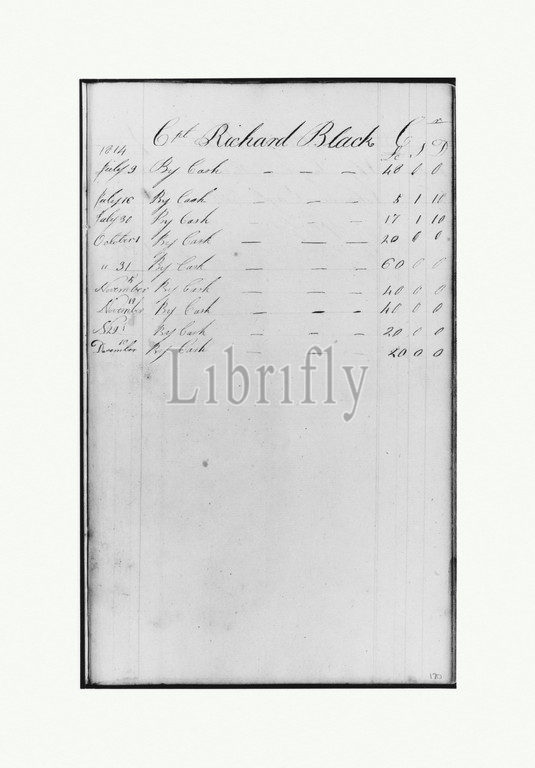 Cpt Richard Black Cr
1814 £ S D
July 9 By Cash — — — 40 0 0
July 16 By Cash — — — 5 1 10
July 30 By Cash — — — 17 1 10
October 1 By Cash — — — 20 0 0
" 31 By Cash — — — 60 0 0
November 5 By Cash — — — 40 0 0
November 19 By Cash — — — 40 0 0
By Cash — — — 20 0 0
December 10 By Cash — — — 20 0 0
Librifly
170